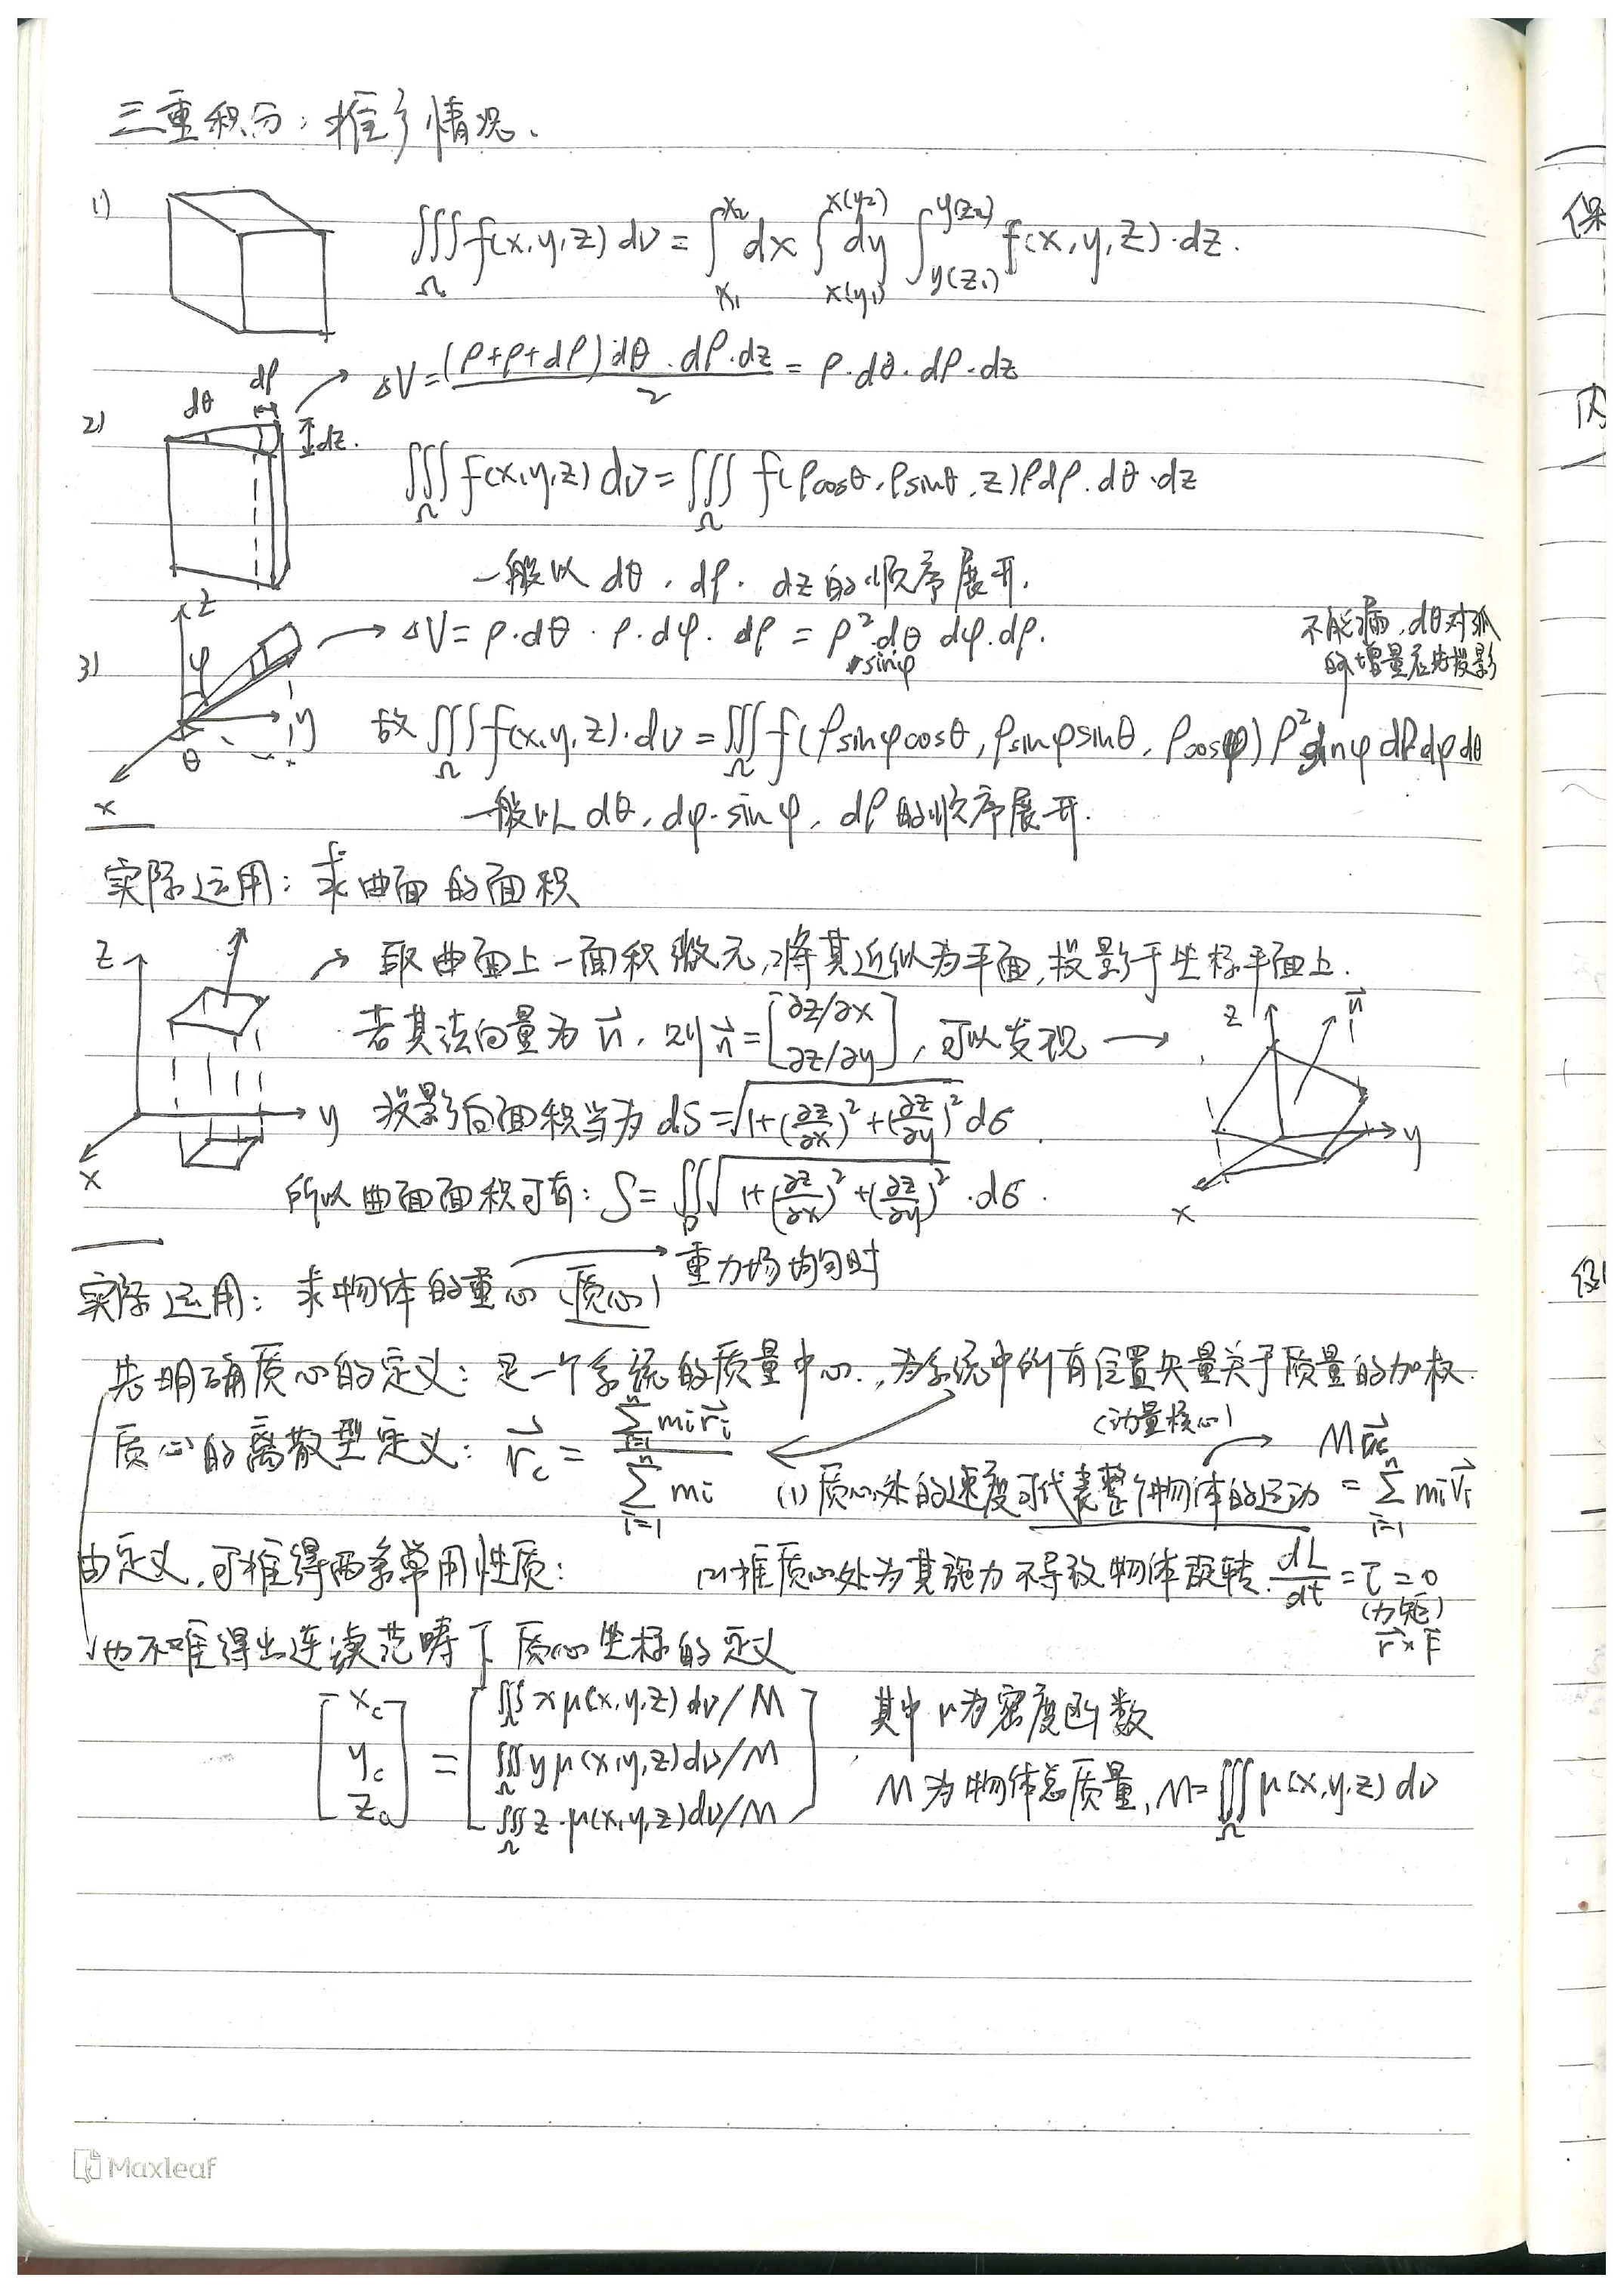 三重积分：推广情况.
1) ∭_Ω f(x,y,z) dv = ∫_{x₁}^{x₂} dx ∫_{x(y₁)}^{x(y₂)} dy ∫_{y(z₁)}^{y(z₂)} f(x,y,z)·dz.
dρ → ΔV = (ρ+ρ+dρ)dθ·dρ·dz / 2 = ρ·dθ·dρ·dz
dθ
2) dz.
∭_Ω f(x,y,z) dv = ∭_Ω f(ρcosθ, ρsinθ, z)ρdρ·dθ·dz
一般以 dθ, dρ, dz的顺序展开.
z → ΔV = ρ·dθ·ρ·dφ·dρ = ρ² sinφ dθ dφ·dρ.
不能漏, dθ对弧
的增量应先投影
3) φ
y θ x
故 ∭_Ω f(x,y,z)·dv = ∭_Ω f(ρsinφcosθ, ρsinφsinθ, ρcosφ) ρ² sinφ dρdφdθ
一般以 dθ, dφ·sinφ, dρ的顺序展开.
实际运用：求曲面的面积
z → 取曲面上一面积微元, 将其近似为平面, 投影于坐标平面上.
若其法向量为 n⃗, 则 n⃗ = [∂z/∂x ∂z/∂y], 可以发现 → z n⃗
y 投影后面积当为 dS = √(1+(∂z/∂x)²+(∂z/∂y)²) dσ.
y
x
所以曲面面积可有: S = ∬_D √(1+(∂z/∂x)²+(∂z/∂y)²)·dσ.
x
实际运用：求物体的重心(质心) → 重力场均匀时
先明确质心的定义：是一个系统的质量中心., 为系统中所有位置矢量关于质量的加权.
质心的离散型定义: r⃗_c = ∑_{i=1}^n m_i r⃗_i / ∑_{i=1}^n m_i
(动量核心)
(1) 质心处的速度可代表整个物体的运动 → M v⃗_c = ∑_{i=1}^n m_i v⃗_i
由定义, 可推得两条常用性质:
(2) 质心处为其施力不导致物体旋转. dL/dt = τ = 0
(力矩)
r⃗×F⃗
也不难得出连续范畴下质心坐标的定义
[x_c y_c z_c] = [∭_Ω xμ(x,y,z)dv/M ∭_Ω yμ(x,y,z)dv/M ∭_Ω z·μ(x,y,z)dv/M],
其中μ为密度函数
M为物体总质量, M = ∭_Ω μ(x,y,z) dv
Maxleaf
保
内